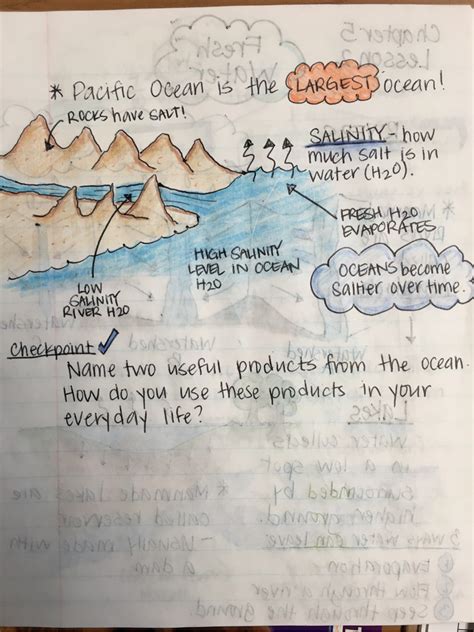 * Pacific Ocean is the LARGEST ocean!
ROCKS HAVE SALT!
SALINITY - how
much salt is in
water (H2O).
FRESH H2O
EVAPORATES
HIGH SALINITY
LEVEL IN OCEAN
H2O
LOW
SALINITY
RIVER H2O
OCEANS become
saltier over time.
Checkpoint ✓
Name two useful products from the ocean.
How do you use these products in your
everyday life?